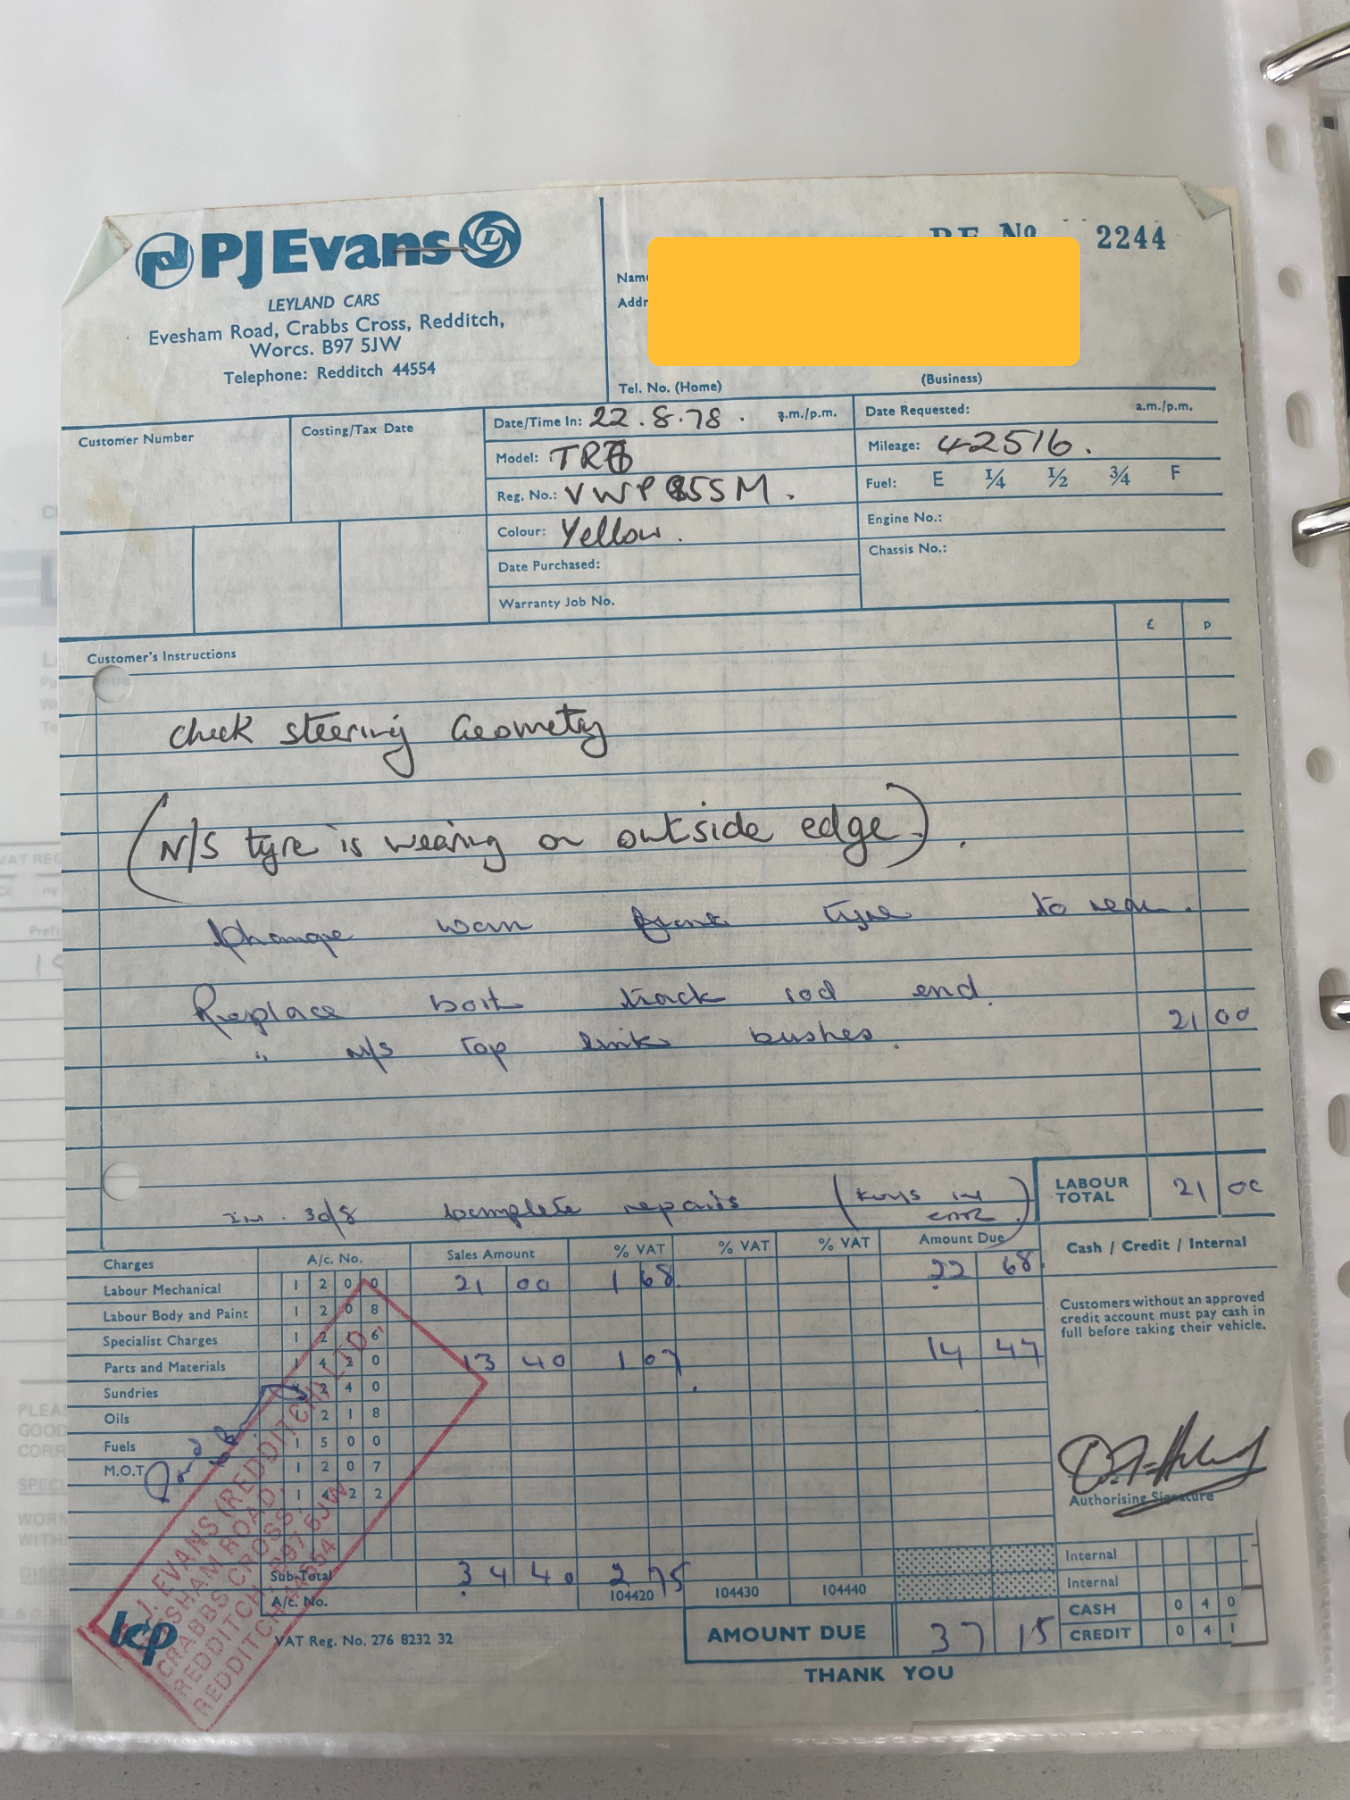 PJ Evans L
LEYLAND CARS
Evesham Road, Crabbs Cross, Redditch,
Worcs. B97 5JW
Telephone: Redditch 44554
RE No 2244
Tel. No. (Home) (Business)
Customer Number
Costing/Tax Date
Date/Time In: 22.8.78. a.m./p.m.
Date Requested: a.m./p.m.
Model: TR6
Mileage: 42516.
Reg. No.: VWP 855M.
Fuel: E 1/4 1/2 3/4 F
Colour: Yellow.
Engine No.:
Date Purchased:
Chassis No.:
Warranty Job No.
£ p
Customer's Instructions
Check steering Geometry
(N/S tyre is wearing on outside edge).
Change worn front tyre to rear.
Replace both track rod end.
" N/S top link bushes. 21 00
complete repairs (keys in
LABOUR TOTAL 21 00
Charges A/c. No. Sales Amount % VAT % VAT % VAT Amount Due
Cash / Credit / Internal
Labour Mechanical 1 2 0 0 21 00 1 68 22 68
Labour Body and Paint 1 2 0 8
Specialist Charges 1 2 6
Parts and Materials 1 4 2 0 13 40 1 07 14 47
Sundries 2 4 0
Oils 1 2 1 8
Fuels 1 5 0 0
M.O.T. 1 2 0 7
1 4 2 2
Customers without an approved
credit account must pay cash in
full before taking their vehicle.
Authorising Signature
Sub-Total 34 40 2 75
A/c. No. 104420 104430 104440
Internal
Internal
CASH 0 4 0
CREDIT 0 4 1
AMOUNT DUE 37 15
THANK YOU
VAT Reg. No. 276 8232 32
kcp
J. EVANS (REDDITCH) LTD.,
EVESHAM ROAD,
CRABBS CROSS,
REDDITCH. B97 5JW
REDDITCH 44554